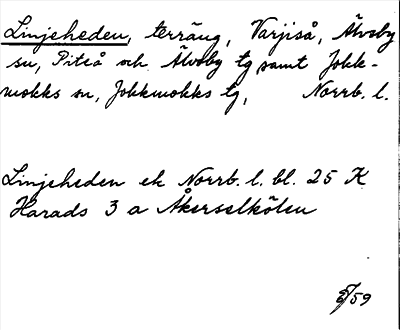 Linjeheden, terräng, Varjiså, Älvsby
sn, Piteå och Älvsby tg samt Jokk-
mokks sn, Jokkmokks tg, Norrb. l.
Linjeheden ek Norrb. l. bl. 25 K
Harads 3 a Åkerselkölen
/59